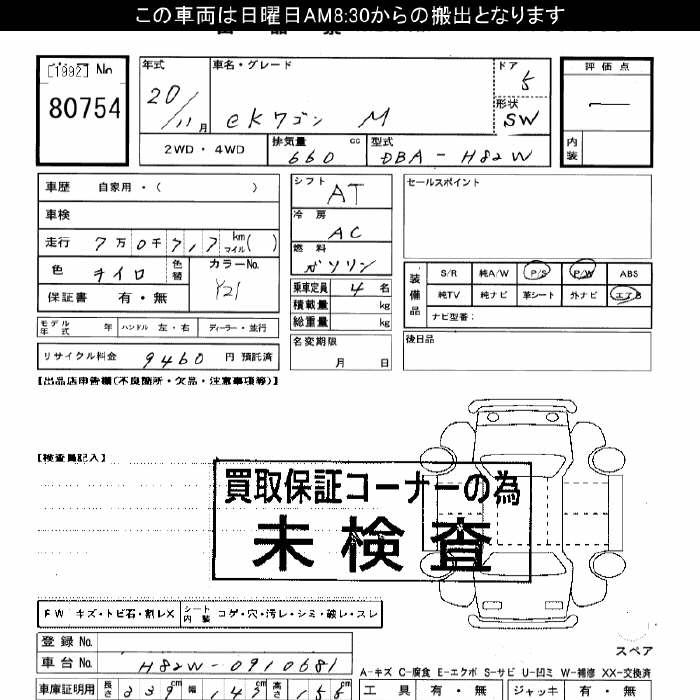 この車両は日曜日AM8:30からの搬出となります
[1992] No
80754
年式 20/11月
車名・グレード eKワゴン M
ドア 5
形状 SW
評価点 ー
内装
2WD・4WD
排気量 660 cc
型式 DBA-H82W
車歴 自家用・( )
車検
走行 7万0千717 km マイル( )
色 チイロ 色替
カラーNo. Y21
保証書 有・無
シフト AT
冷房 AC
燃料 ガソリン
乗車定員 4 名
積載量 kg
総重量 kg
セールスポイント
装備品
S/R 純A/W P/S P/W ABS
純TV 純ナビ 革シート 外ナビ エアB
ナビ型番:
モデル年式 年 ハンドル 左・右 ディーラー・並行
リサイクル料金 9460 円 預託済
名変期限 月 日
後日品
【出品店申告欄(不良箇所・欠品・注意事項等)】
【検査員記入】
買取保証コーナーの為
未検査
FW キズ・トビ石・割レX シート内装 コゲ・穴・汚レ・シミ・破レ・スレ
登録 No.
車台 No. H82W-0910681
スペア
A-キズ C-腐食 E-エクボ S-サビ U-凹ミ W-補修 XX-交換済
車庫証明用 長さ 339 cm 幅 147 cm 高さ 155 cm
工具 有・無 ジャッキ 有・無